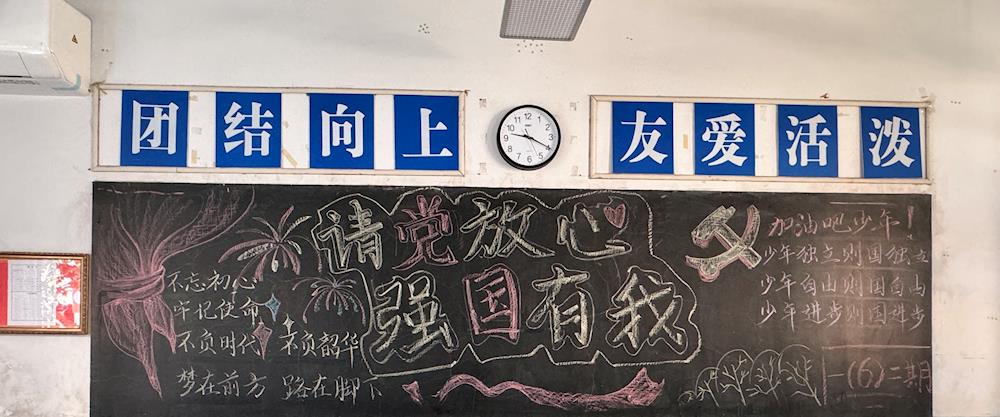 团结向上
友爱活泼
请党放心
强国有我
不忘初心
牢记使命
不负时代 不负韶华
梦在前方 路在脚下
加油吧少年!
少年独立则国独立
少年自由则国自由
少年进步则国进步
一(6)二期